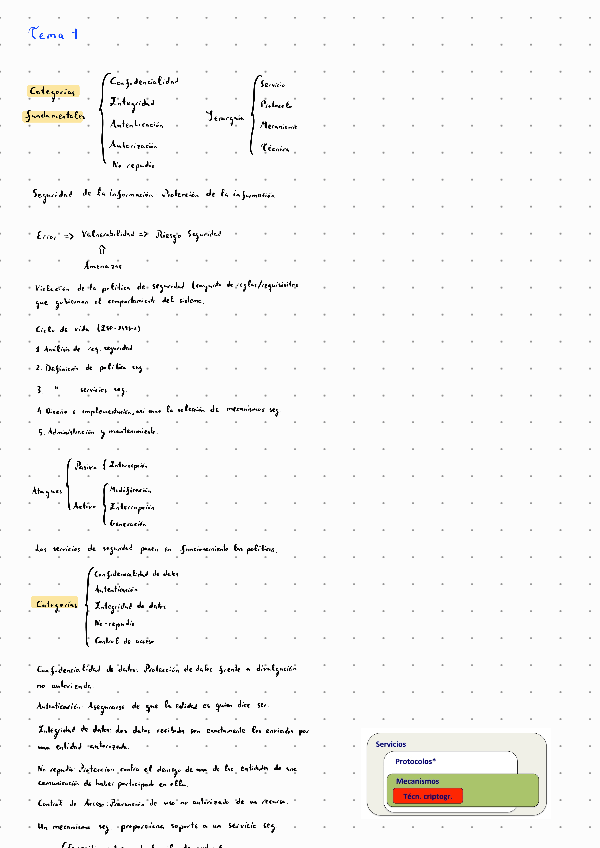 Tema 1
Categorías fundamentales
Confidencialidad
Integridad
Autenticación
Autorización
No repudio
Jerarquía
Servicio
Protocolo
Mecanismo
Técnica
Seguridad de la información Protección de la información
Error => Vulnerabilidad => Riesgo Seguridad
⇑
Amenazas
Violación de la política de seguridad (conjunto de reglas/requisitos
que gobiernan el comportamiento del sistema.
Ciclo de vida
1. Análisis de req. seguridad
2. Definición de política seg.
3 " servicios seg.
4. Diseño e implementación, así como la selección de mecanismos seg
5. Administración y mantenimiento.
Ataques
Pasivo { Intercepción
Activo
Modificación
Interrupción
Generación
Los servicios de seguridad ponen en funcionamiento las políticas.
Categorías
Confidencialidad de datos
Autenticación
Integridad de datos
No-repudio
Control de acceso
Confidencialidad de datos: Protección de datos frente a divulgación
no autorizada
Autenticación Asegurarse de que la entidad es quien dice ser.
Integridad de datos: los datos recibidos son exactamente los enviados por
una entidad autorizada.
No repudio Protección contra el deniego de una de las entidades de una
comunicación de haber participado en ella.
Control de Acceso: Prevención de uso no autorizado de un recurso.
Un mecanismo seg proporciona soporte a un servicio seg
Servicios
Protocolos*
Mecanismos
Técn. criptogr.